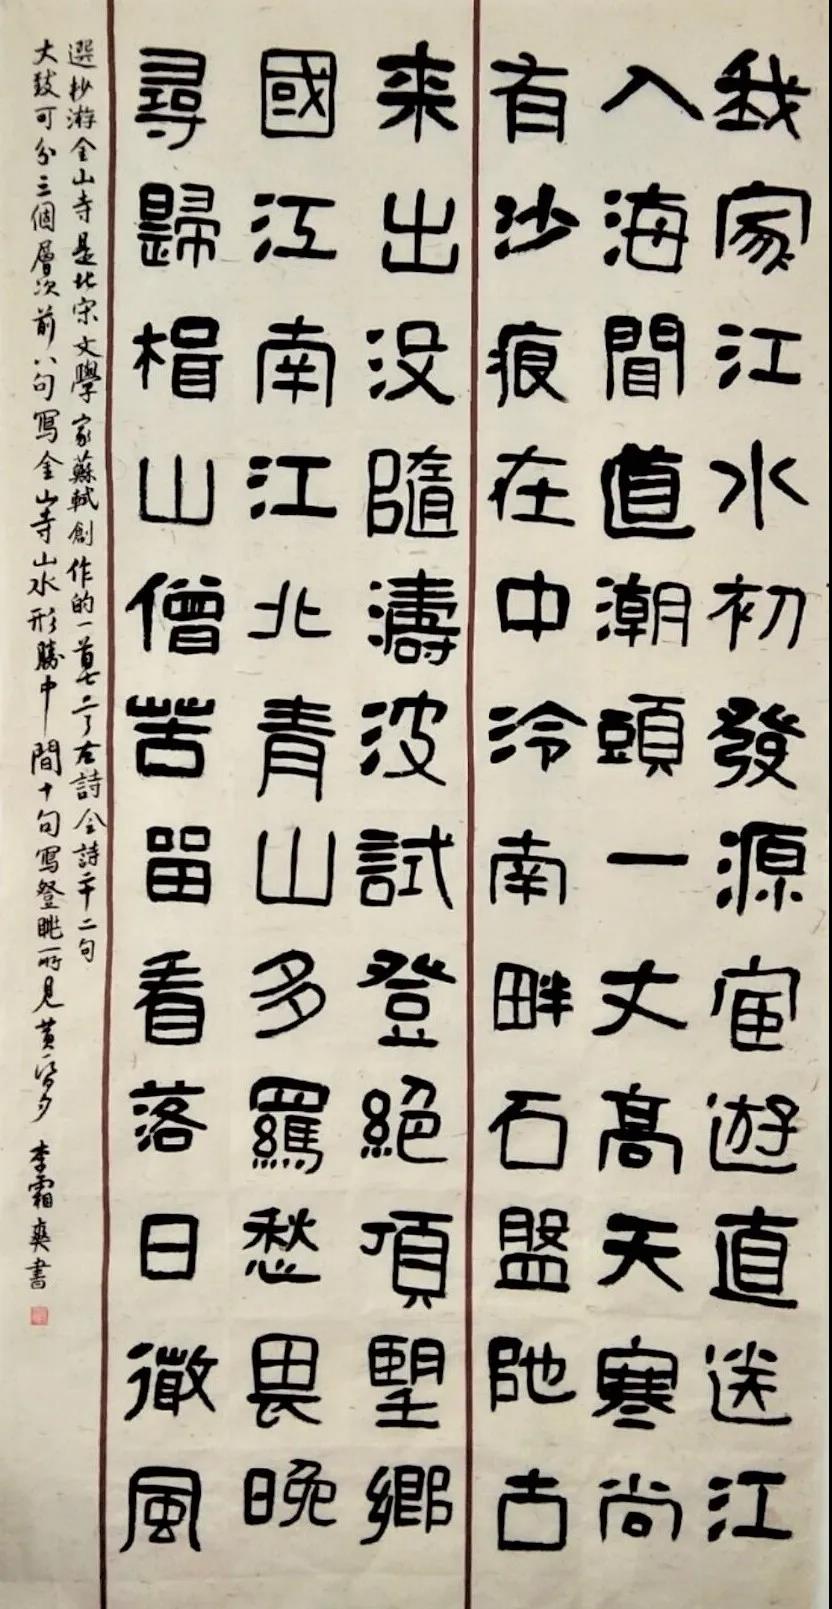 我家江水初發源宦遊直送江
入海聞道潮頭一丈高天寒尚
有沙痕在中泠南畔石盤陁古
来出没隨濤波試登絕頂望鄉
國江南江北青山多羈愁畏晚
尋歸楫山僧苦留看落日微風
選抄游金山寺是北宋文學家蘇軾創作的一首七言古詩全詩二十二句
大致可分三個層次前八句寫金山寺山水形勝中間十句寫登眺所見黃昏夕 李霜爽書